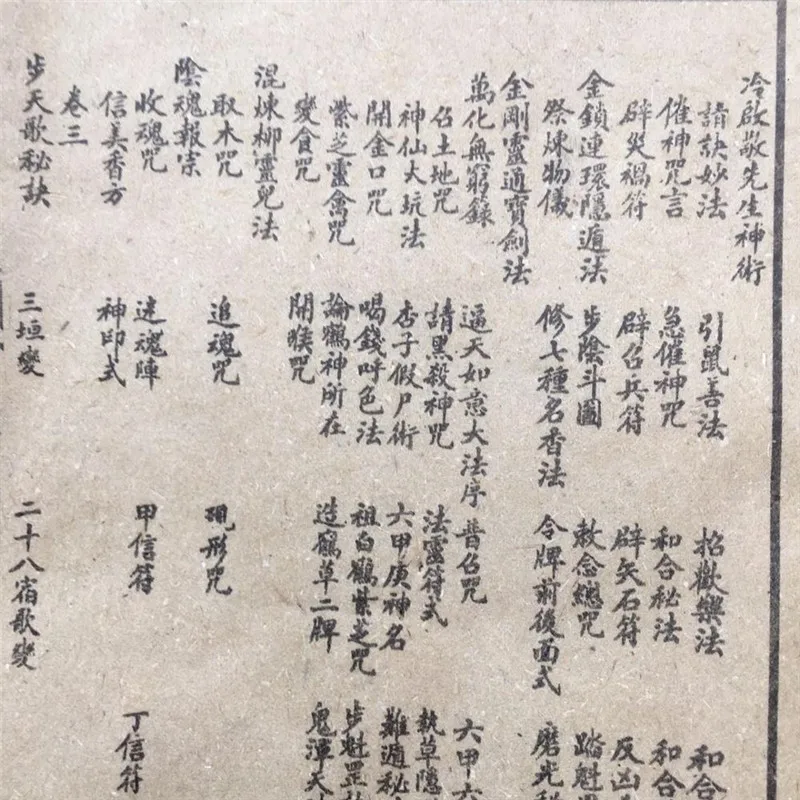 冷啟敬先生神術
請訣妙法 引鼠善法 招歡樂法 和合
催神咒言 急催神咒 和合秘法 和合
辟災禍符 辟召兵符 辟矢石符 反凶
金鎖連環隱遁法 步陰斗圖 敕念總咒 踏魁
祭煉物儀 修七種名香法 令牌前後面式 磨光
金剛靈通寶劍法
萬化無窮錄 逼天如意大法序 普召咒 六甲六
召土地咒 請黑殺神咒 法靈符式 執草隱
神仙大坑法 杏子假尸術 六甲庚神名 難遁秘
開金口咒 喝錢呼色法 祖白鶴紫芝咒 步魁罡
紫芝靈禽咒 論鶴神所在 造鶴草二牌 鬼渾天
變食咒 開喉咒
混煉柳靈兒法
取木咒 追魂咒 現形咒
陰魂報宗
收魂咒 迷魂陣 甲信符 丁信符
信美香方 神印式
卷三
步天歌秘訣 三垣變 二十八宿歌變